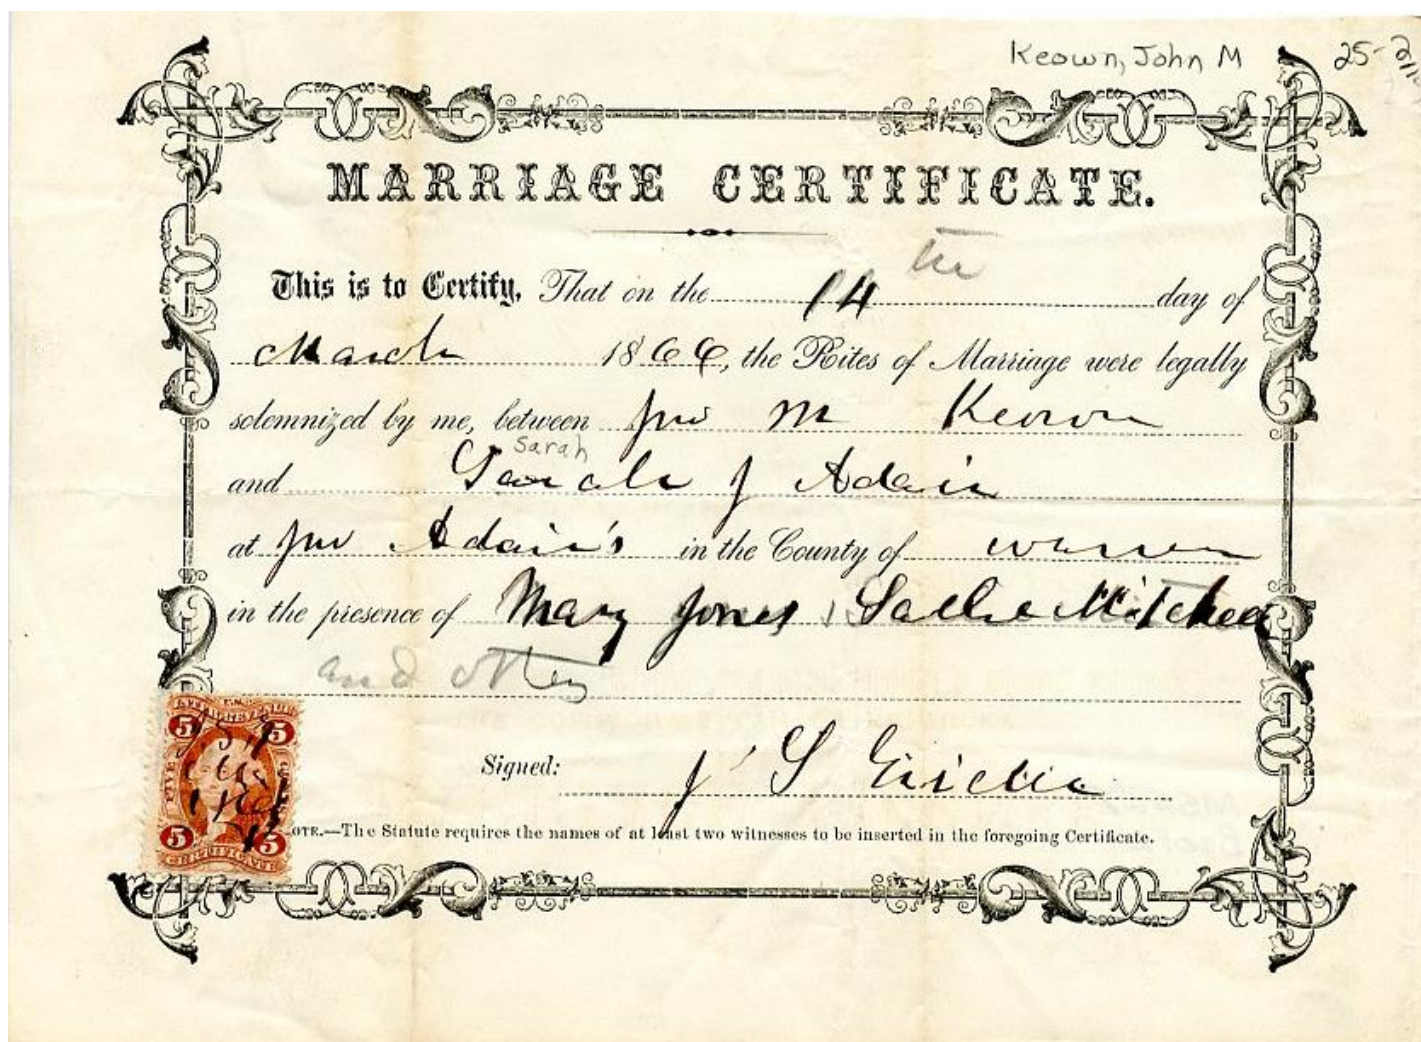 Keown, John M
25-
MARRIAGE CERTIFICATE.
This is to Certify, That on the 14 th day of
March 1866, the Rites of Marriage were legally
solemnized by me, between Jno M Keown
Sarah
and Sarah J Adair
at Jno Adair's in the County of Warren
in the presence of Mary Jones & Sallie Mitchell
and others
Signed: J S
OTE.—The Statute requires the names of at least two witnesses to be inserted in the foregoing Certificate.
5 5
5 5
CERTIFICATE